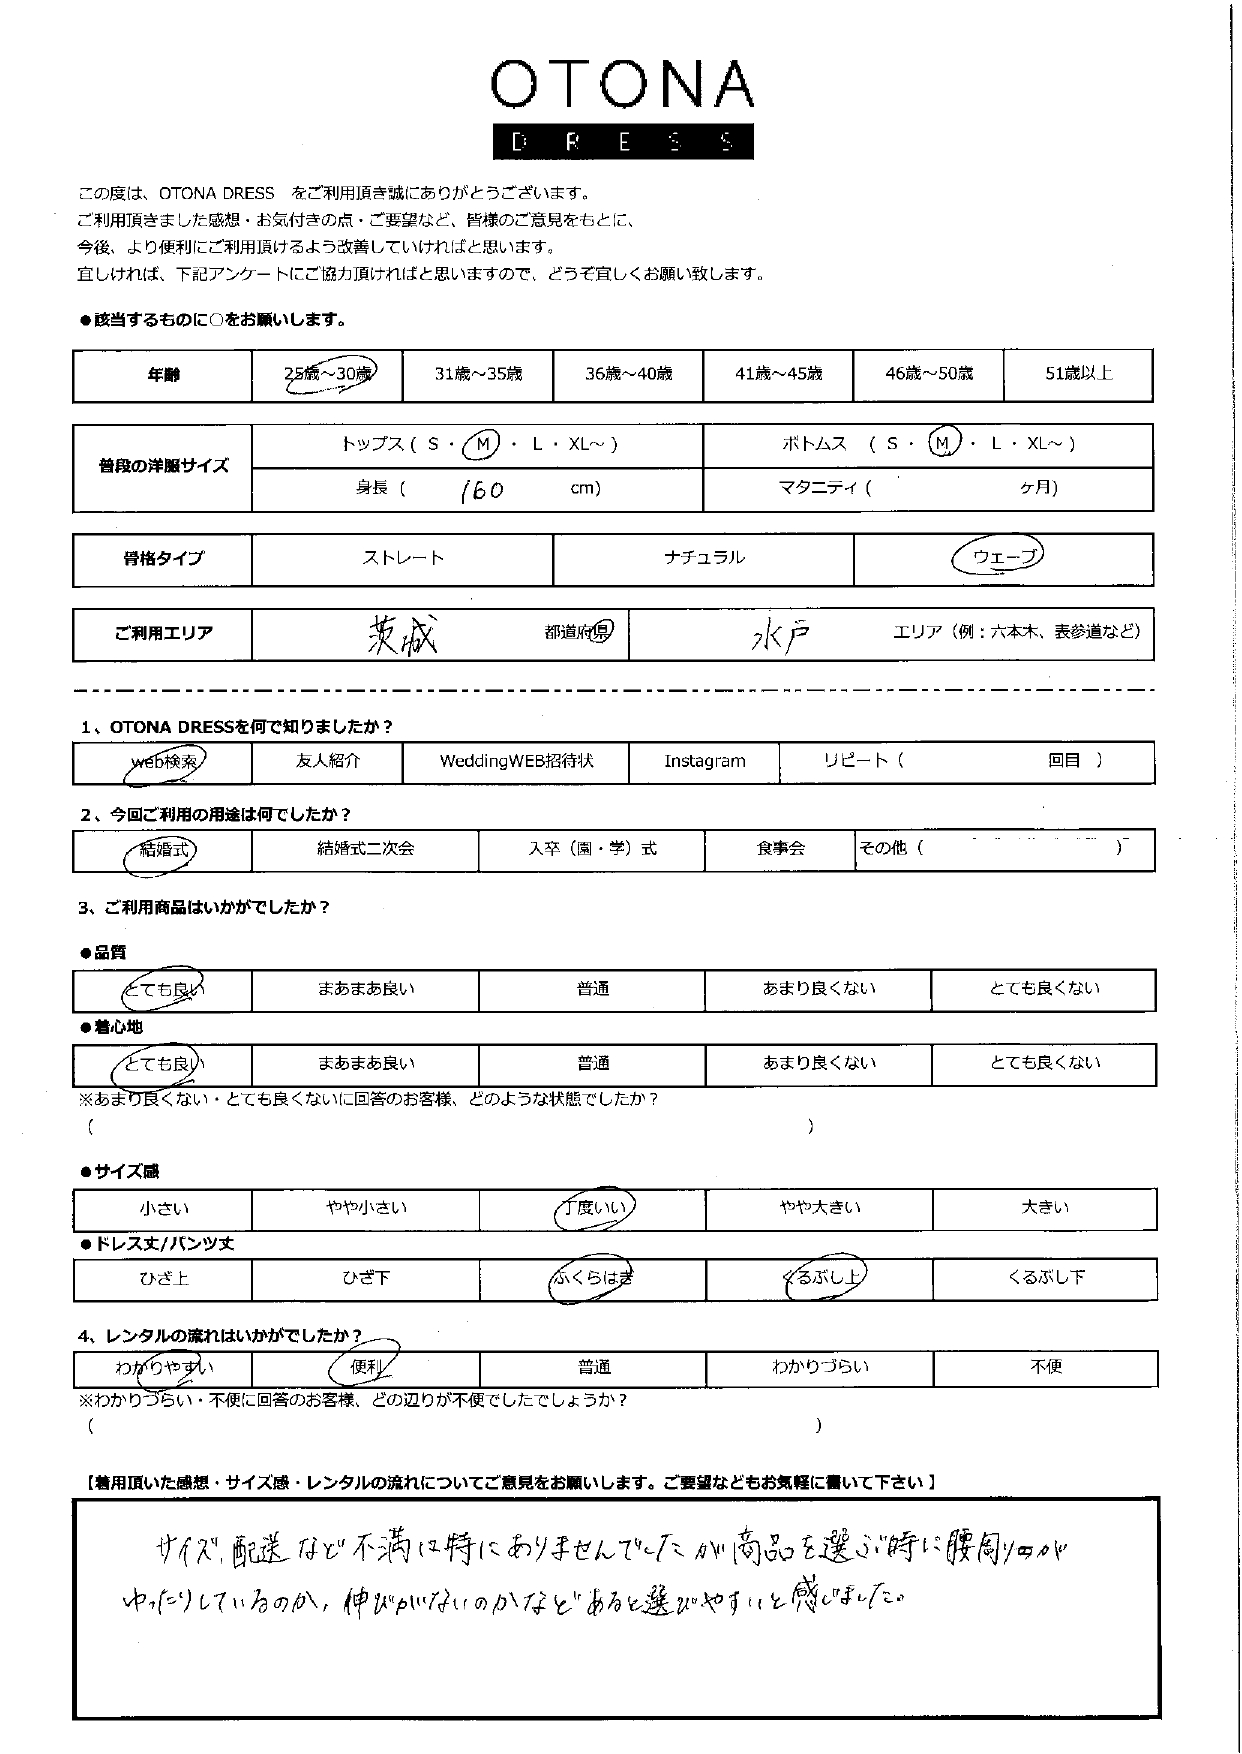 OTONA
DRESS
この度は、OTONA DRESS　をご利用頂き誠にありがとうございます。
ご利用頂きました感想・お気付きの点・ご要望など、皆様のご意見をもとに、
今後、より便利にご利用頂けるよう改善していければと思います。
宜しければ、下記アンケートにご協力頂ければと思いますので、どうぞ宜しくお願い致します。
●該当するものに○をお願いします。
年齢 25歳～30歳 31歳～35歳 36歳～40歳 41歳～45歳 46歳～50歳 51歳以上
普段の洋服サイズ トップス ( S ・ M ・ L ・ XL～ ) ボトムス ( S ・ M ・ L ・ XL～ )
身長 ( 160 cm) マタニティ ( ヶ月)
骨格タイプ ストレート ナチュラル ウェーブ
ご利用エリア 茨城 都道府県 水戸 エリア（例：六本木、表参道など）
1、OTONA DRESSを何で知りましたか？
web検索 友人紹介 WeddingWEB招待状 Instagram リピート（ 回目 ）
2、今回ご利用の用途は何でしたか？
結婚式 結婚式二次会 入卒（園・学）式 食事会 その他（ ）
3、ご利用商品はいかがでしたか？
●品質
とても良い まあまあ良い 普通 あまり良くない とても良くない
●着心地
とても良い まあまあ良い 普通 あまり良くない とても良くない
※あまり良くない・とても良くないに回答のお客様、どのような状態でしたか？
( )
●サイズ感
小さい やや小さい 丁度いい やや大きい 大きい
●ドレス丈/パンツ丈
ひざ上 ひざ下 ふくらはぎ くるぶし上 くるぶし下
4、レンタルの流れはいかがでしたか？
わかりやすい 便利 普通 わかりづらい 不便
※わかりづらい・不便に回答のお客様、どの辺りが不便でしたでしょうか？
( )
【着用頂いた感想・サイズ感・レンタルの流れについてご意見をお願いします。ご要望などもお気軽に書いて下さい】
サイズ、配送など不満は特にありませんでしたが商品を選ぶ時に腰周りのが
ゆったりしているのか、伸びがいないのかなどあると選びやすいと感じました。